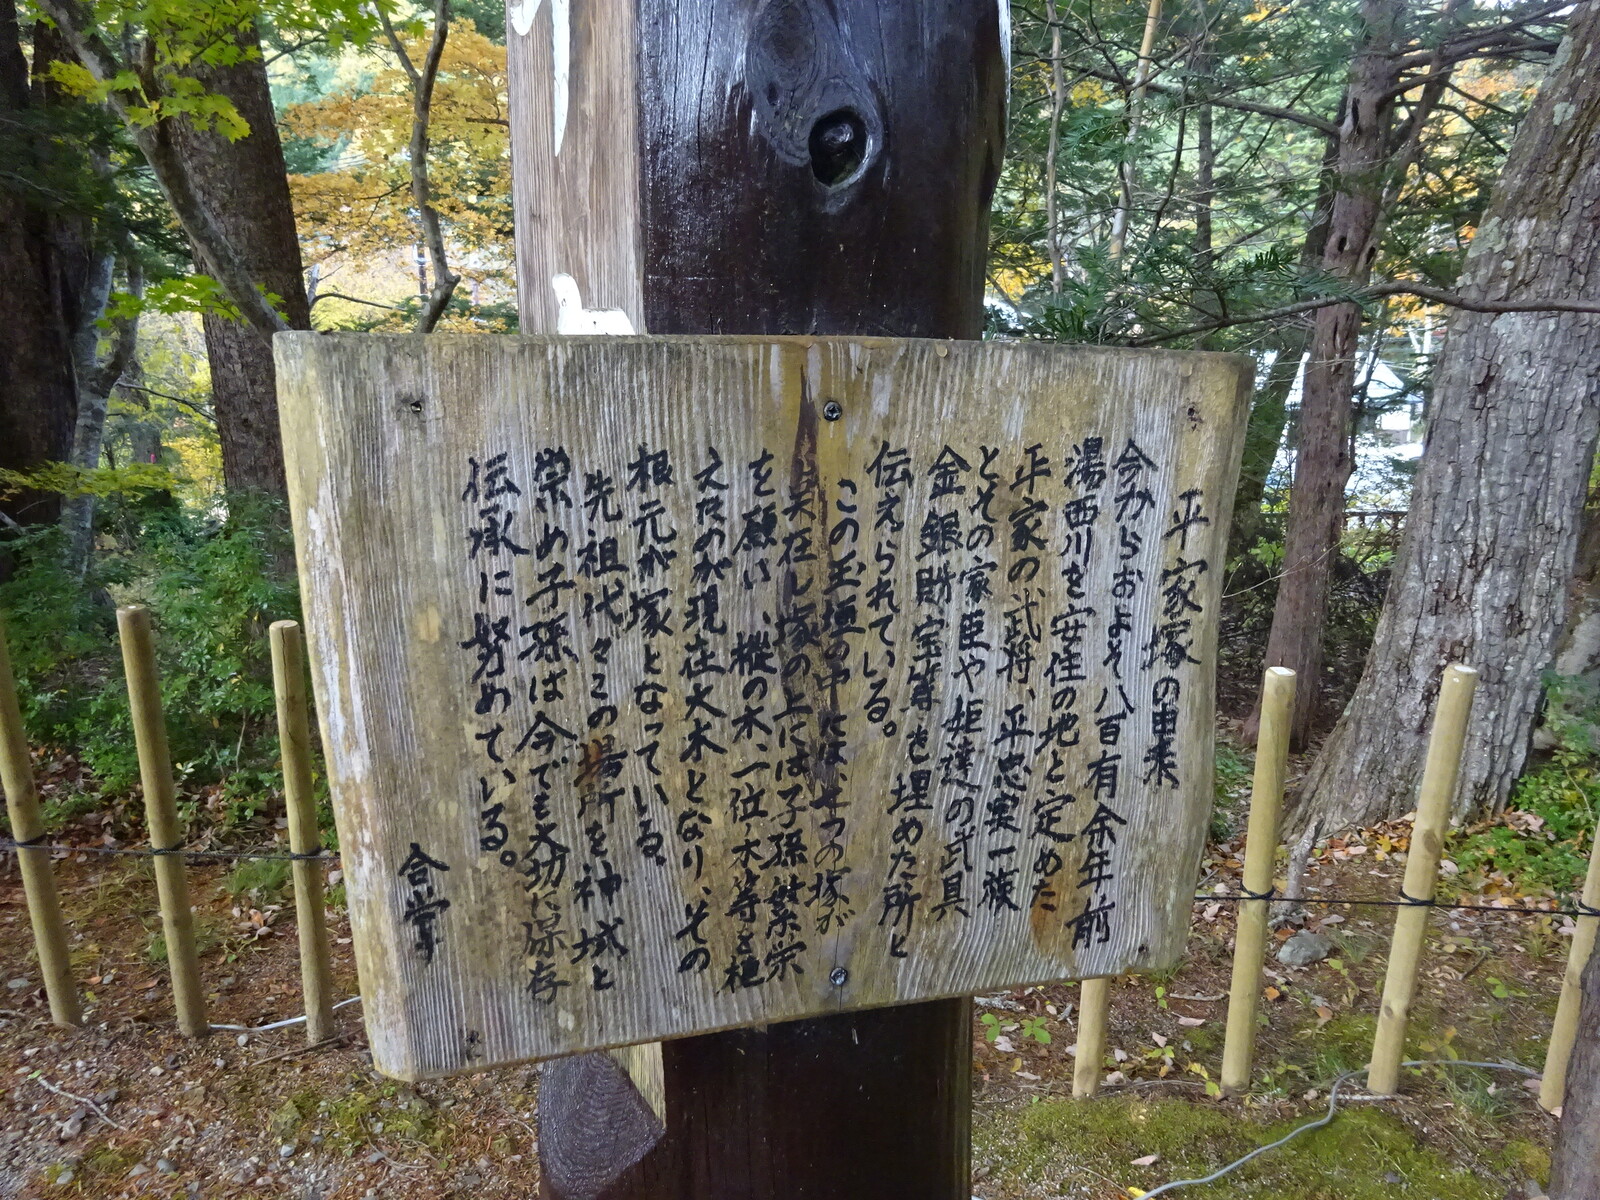 平家塚の由来
今からおよそ八百有余年前
湯西川を安住の地と定めた
平家の武将、平忠実一族
とその家臣や姫達の武具
金銀財宝等を埋めた所と
伝えられている。
この玉垣の中には、七つの塚が
実在し塚の上には子孫繁栄
を願い、樅の木、一位ノ木等を植
えたのが現在大木となり、その
根元が塚となっている。
先祖代々この場所を神域と
崇め子孫は今でも大切に保存
伝承に努めている。